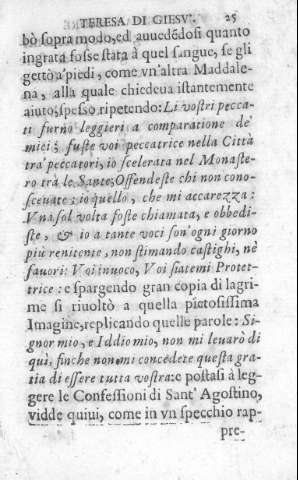 TERESA DI GIESV'. 25
bò sopra modo, ed auuedẽdosi quanto
ingrata fosse stata à quel sangue, se gli
gettò a'piedi, come vn'altra Maddale-
na, alla quale chiedeua istantemente
aiuto, spesso ripetendo: Li vostri pecca-
ti furno leggieri a comparatione de'
miei; fuste voi peccatrice nella Città
tra'peccatori, io scelerata nel Monaste-
ro trà le Sante; Offendeste chi non cono-
sceuate; io quello, che mi accarezza:
Vna sol volta foste chiamata, e obbedi-
ste, & io a tante voci son'ogni giorno
più renitente, non stimando castighi, nè
fauori: Voi inuoco, Voi siatemi Protet-
trice: e spargendo gran copia di lagri-
me si riuoltò a quella pietosissima
Imagine, replicando quelle parole: Si-
gnor mio, e Iddio mio, non mi leuarò di
quì, finche non mi concedete questa gra-
tia di essere tutta vostra: e postasi à leg-
gere le Confessioni di Sant' Agostino,
vidde quiui, come in vn specchio rap-
pre-